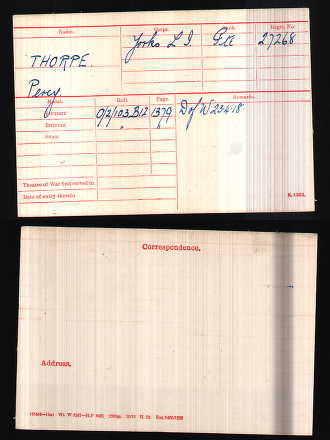 Name. Corps. Rank. Regtl. No.
THORPE. Yorks L.I. Pte 27268
Percy
Medal. Roll. Page. Remarks.
Victory O/2/103.B12 1379 D of W 23.4.18
British " "
Star
Theatre of War first served in
Date of entry therein
K. 1380.
Correspondence.
Address.